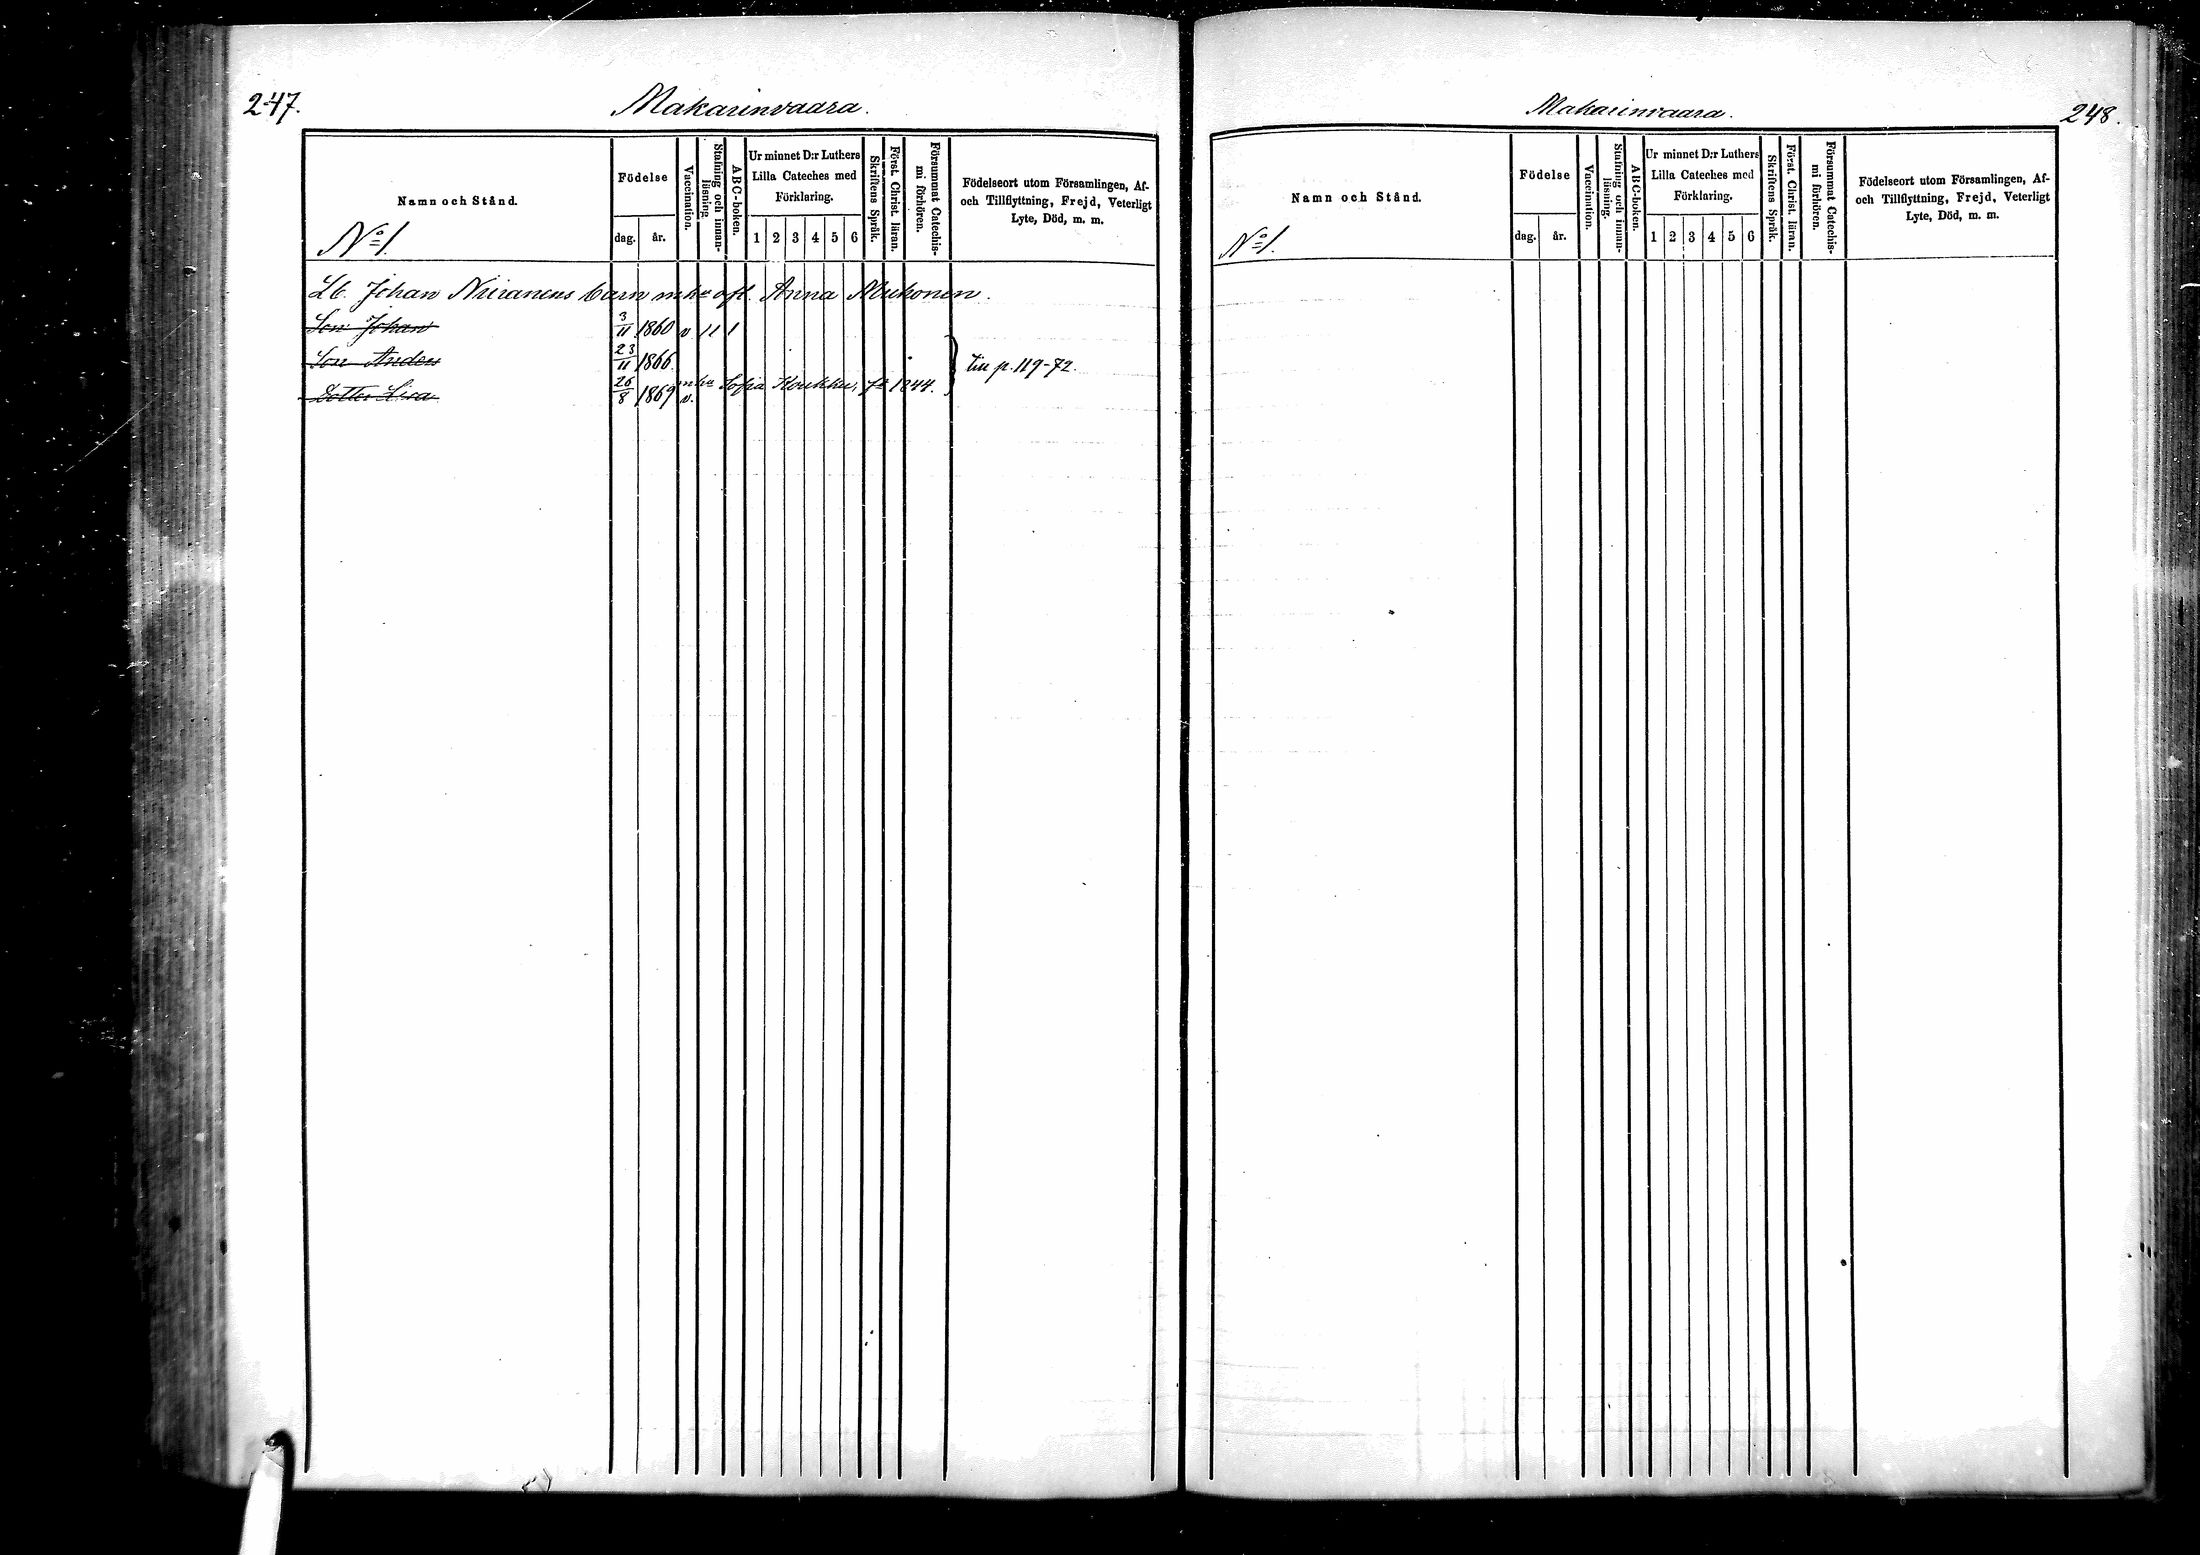 247.
Makarinvaara.
Namn och Stånd.
Födelse
dag. år.
Vaccination.
Stafning och innan-
läsning.
ABC-boken.
Ur minnet D:r Luthers
Lilla Cateches med
Förklaring.
1 2 3 4 5 6
Skriftens Språk.
Först. Christ. läran.
Försummat Catechis-
mi förhören.
Födelseort utom Församlingen, Af-
och Tillflyttning, Frejd, Veterligt
Lyte, Död, m. m.
No 1.
Lb. Johan Niiranens barn m. hu afl. Anna Mukonen.
Son Johan 3/11 1860 v. 11 1
Son Anders 23/11 1866. till p. 119-72.
m. hu Sofia Koukku, fd 1844.
Dotter Lisa 26/8 1869 v.
Makarinvaara.
248.
Namn och Stånd.
Födelse
dag. år.
Vaccination.
Stafning och innan-
läsning.
ABC-boken.
Ur minnet D:r Luthers
Lilla Cateches med
Förklaring.
1 2 3 4 5 6
Skriftens Språk.
Först. Christ. läran.
Försummat Catechis-
mi förhören.
Födelseort utom Församlingen, Af-
och Tillflyttning, Frejd, Veterligt
Lyte, Död, m. m.
No 1.